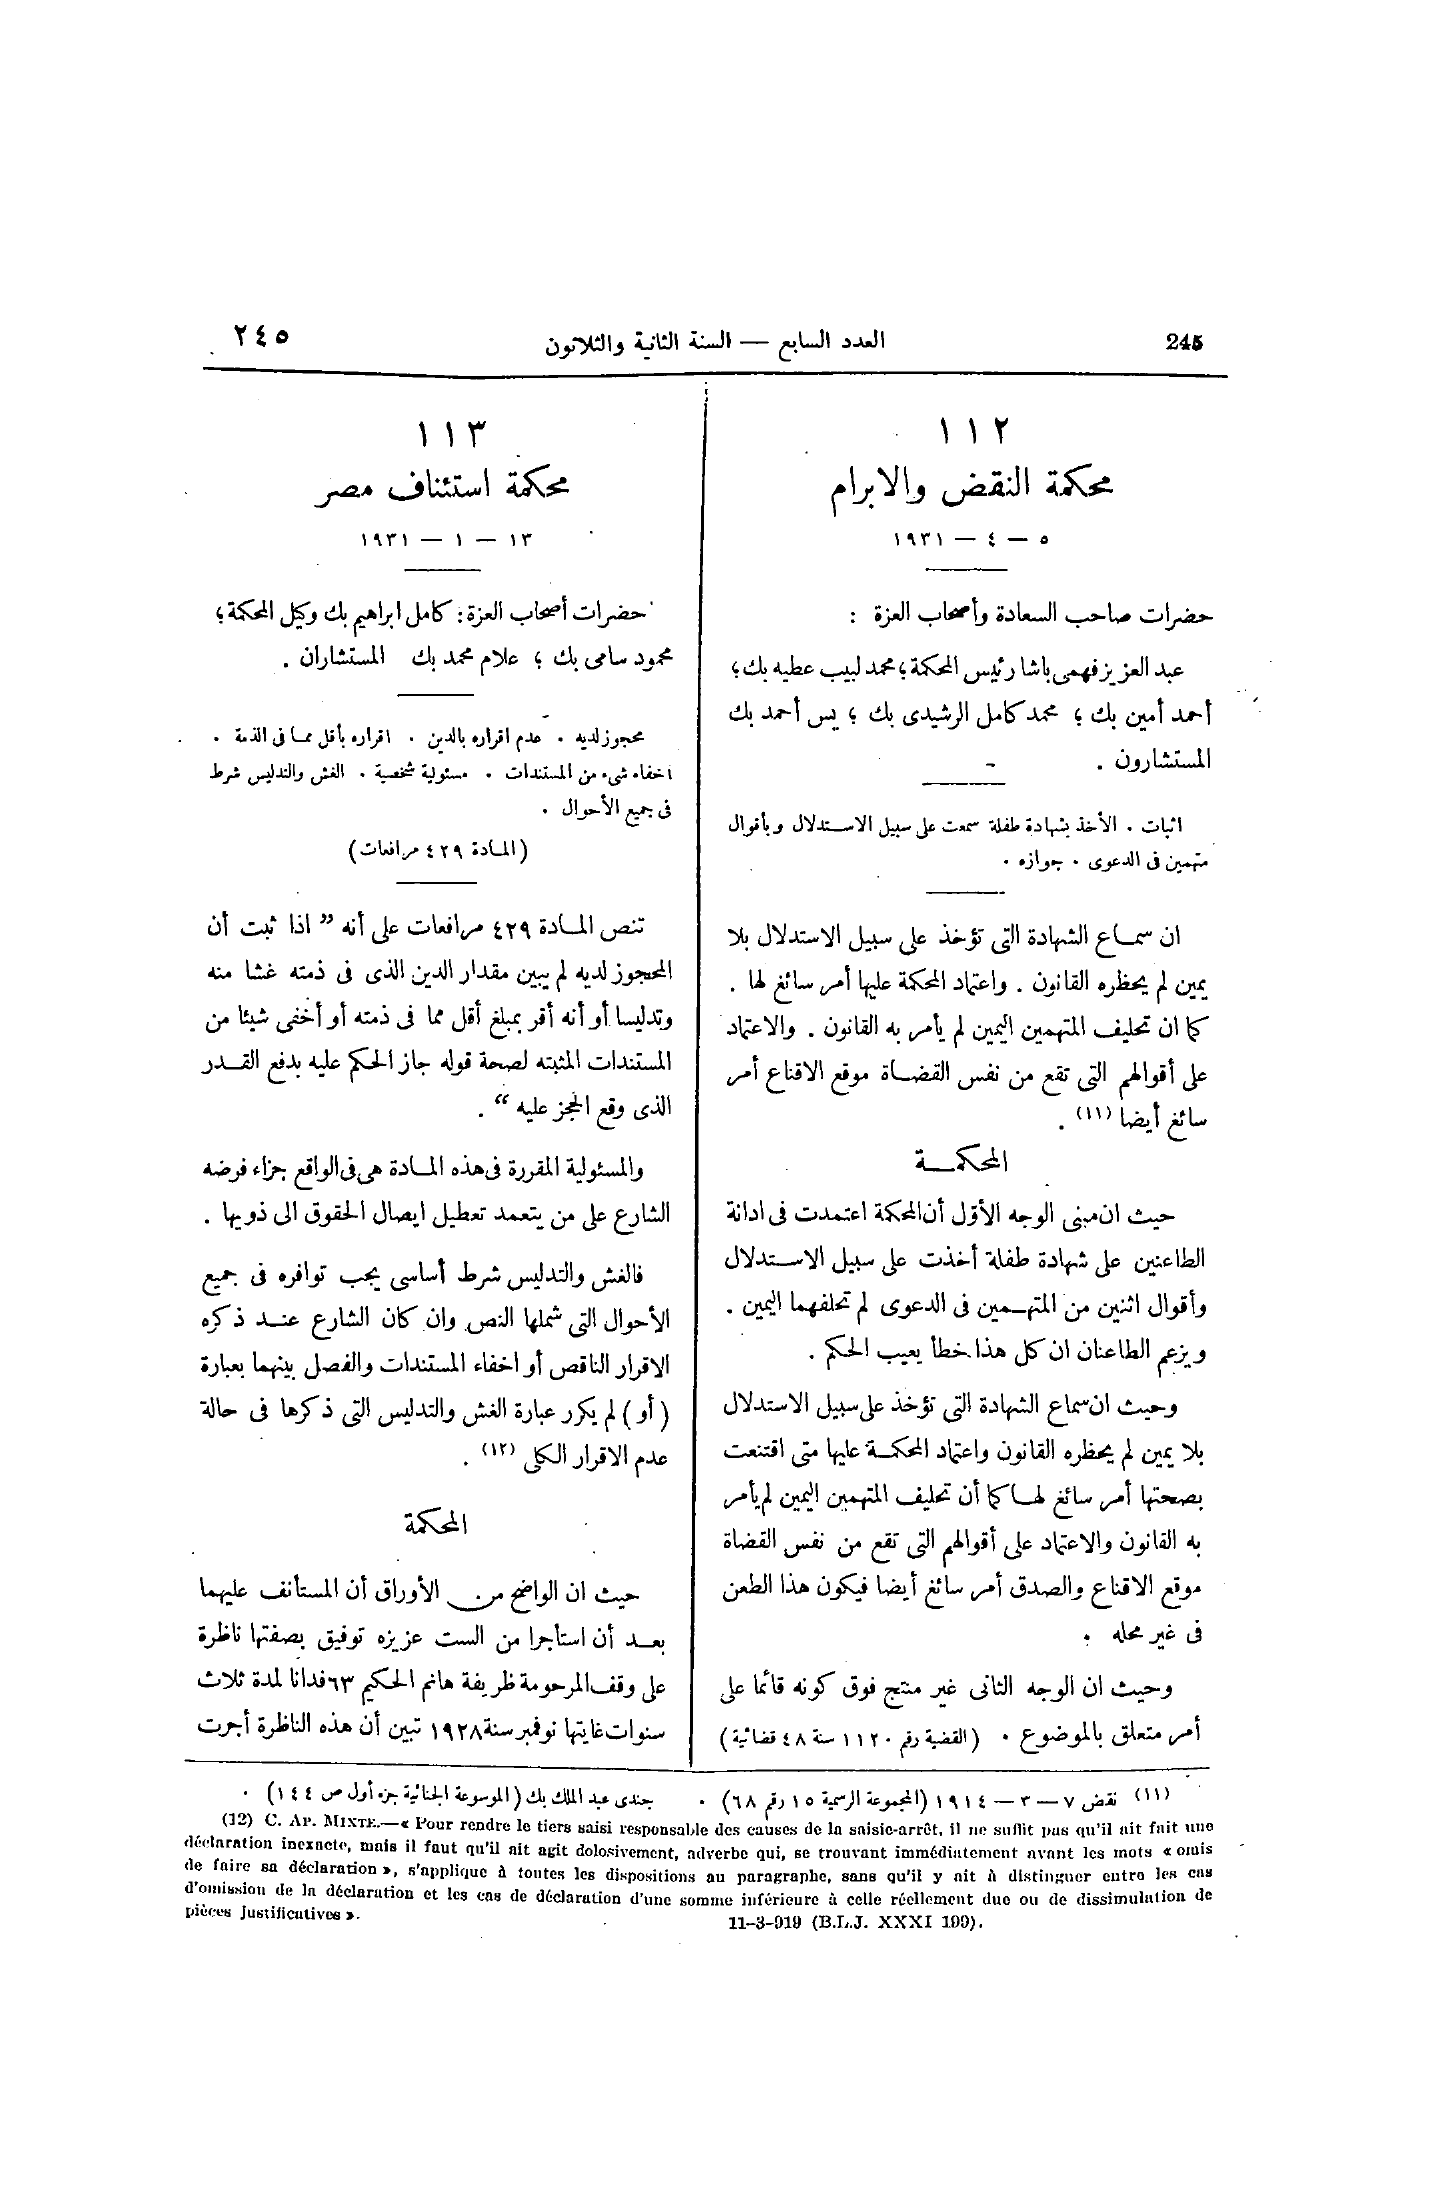 245
العدد السابع — السنة الثانية والثلاثون
٢٤٥
١١٢
محكمة النقض والابرام
٥ — ٤ — ١٩٣١
حضرات صاحب السعادة وأصحاب العزة :
عبد العزيز فهمى باشا رئيس المحكمة ؛ محمد لبيب عطيه بك ؛
أحمد أمين بك ؛ محمد كامل الرشيدى بك ؛ يس أحمد بك
المستشارون .
اثبات . الأخذ بشهادة طفلة سمعت على سبيل الاستدلال وبأقوال
متهمين فى الدعوى . جوازه .
ان سماع الشهادة التى تؤخذ على سبيل الاستدلال بلا
يمين لم يحظره القانون . واعتماد المحكمة عليها أمر سائغ لها .
كما ان تحليف المتهمين اليمين لم يأمر به القانون . والاعتماد
على أقوالهم التى تقع من نفس القضاة موقع الاقناع أمر
سائغ أيضا (١١) .
المحكمة
حيث ان مبنى الوجه الأول أن المحكمة اعتمدت فى ادانة
الطاعنين على شهادة طفلة أخذت على سبيل الاستدلال
وأقوال اثنين من المتهمين فى الدعوى لم تحلفهما اليمين .
ويزعم الطاعنان ان كل هذا خطأ يعيب الحكم .
وحيث ان سماع الشهادة التى تؤخذ على سبيل الاستدلال
بلا يمين لم يحظره القانون واعتماد المحكمة عليها متى اقتنعت
بصحتها أمر سائغ لها كما أن تحليف المتهمين اليمين لم يأمر
به القانون والاعتماد على أقوالهم التى تقع من نفس القضاة
موقع الاقناع والصدق أمر سائغ أيضا فيكون هذا الطعن
فى غير محله .
وحيث ان الوجه الثانى غير منتج فوق كونه قائما على
أمر متعلق بالموضوع . (القضية رقم ١١٢٠ سنة ٤٨ قضائية)
١١٣
محكمة استئناف مصر
١٣ — ١ — ١٩٣١
حضرات أصحاب العزة : كامل ابراهيم بك وكيل المحكمة ؛
محمود سامى بك ؛ علام محمد بك المستشاران .
محجوز لديه . عدم اقراره بالدين . اقراره بأقل مما فى الذمة .
اخفاء شىء من المستندات . مسئولية شخصية . الغش والتدليس شرط
فى جميع الأحوال .
(المادة ٤٢٩ مرافعات)
تنص المادة ٤٢٩ مرافعات على أنه ” اذا ثبت أن
المحجوز لديه لم يبين مقدار الدين الذى فى ذمته غشا منه
وتدليسا أو أنه أقر بمبلغ أقل مما فى ذمته أو أخفى شيئا من
المستندات المثبته لصحة قوله جاز الحكم عليه بدفع القدر
الذى وقع الحجز عليه “ .
والمسئولية المقررة فى هذه المادة هى فى الواقع جزاء فرضه
الشارع على من يتعمد تعطيل ايصال الحقوق الى ذويها .
فالغش والتدليس شرط أساسى يجب توافره فى جميع
الأحوال التى شملها النص وان كان الشارع عند ذكره
الاقرار الناقص أو اخفاء المستندات والفصل بينهما بعبارة
(أو) لم يكرر عبارة الغش والتدليس التى ذكرها فى حالة
عدم الاقرار الكلى (١٢) .
المحكمة
حيث ان الواضح من الأوراق أن المستأنف عليهما
بعد أن استأجرا من الست عزيزه توفيق بصفتها ناظرة
على وقف المرحومة ظريفة هانم الحكيم ٦٣ فدانا لمدة ثلاث
سنوات غايتها نوفمبر سنة ١٩٢٨ تبين أن هذه الناظرة أجرت
(١١) نقض ٧ — ٣ — ١٩١٤ (المجموعة الرسمية ١٥ رقم ٦٨) . جندى عبد الملك بك (الموسوعة الجنائية جزء أول ص ١٤٤) .
(12) C. AP. MIXTE.—« Pour rendre le tiers saisi responsable des causes de la saisie-arrêt, il ne suffit pas qu'il ait fait une
déclaration inexacte, mais il faut qu'il ait agit dolosivement, adverbe qui, se trouvant immédiatement avant les mots « omis
de faire sa déclaration », s'applique à toutes les dispositions au paragraphe, sans qu'il y ait à distinguer entre les cas
d'omission de la déclaration et les cas de déclaration d'une somme inférieure à celle réellement due ou de dissimulation de
pièces justificatives ».
11-3-919 (B.L.J. XXXI 199).